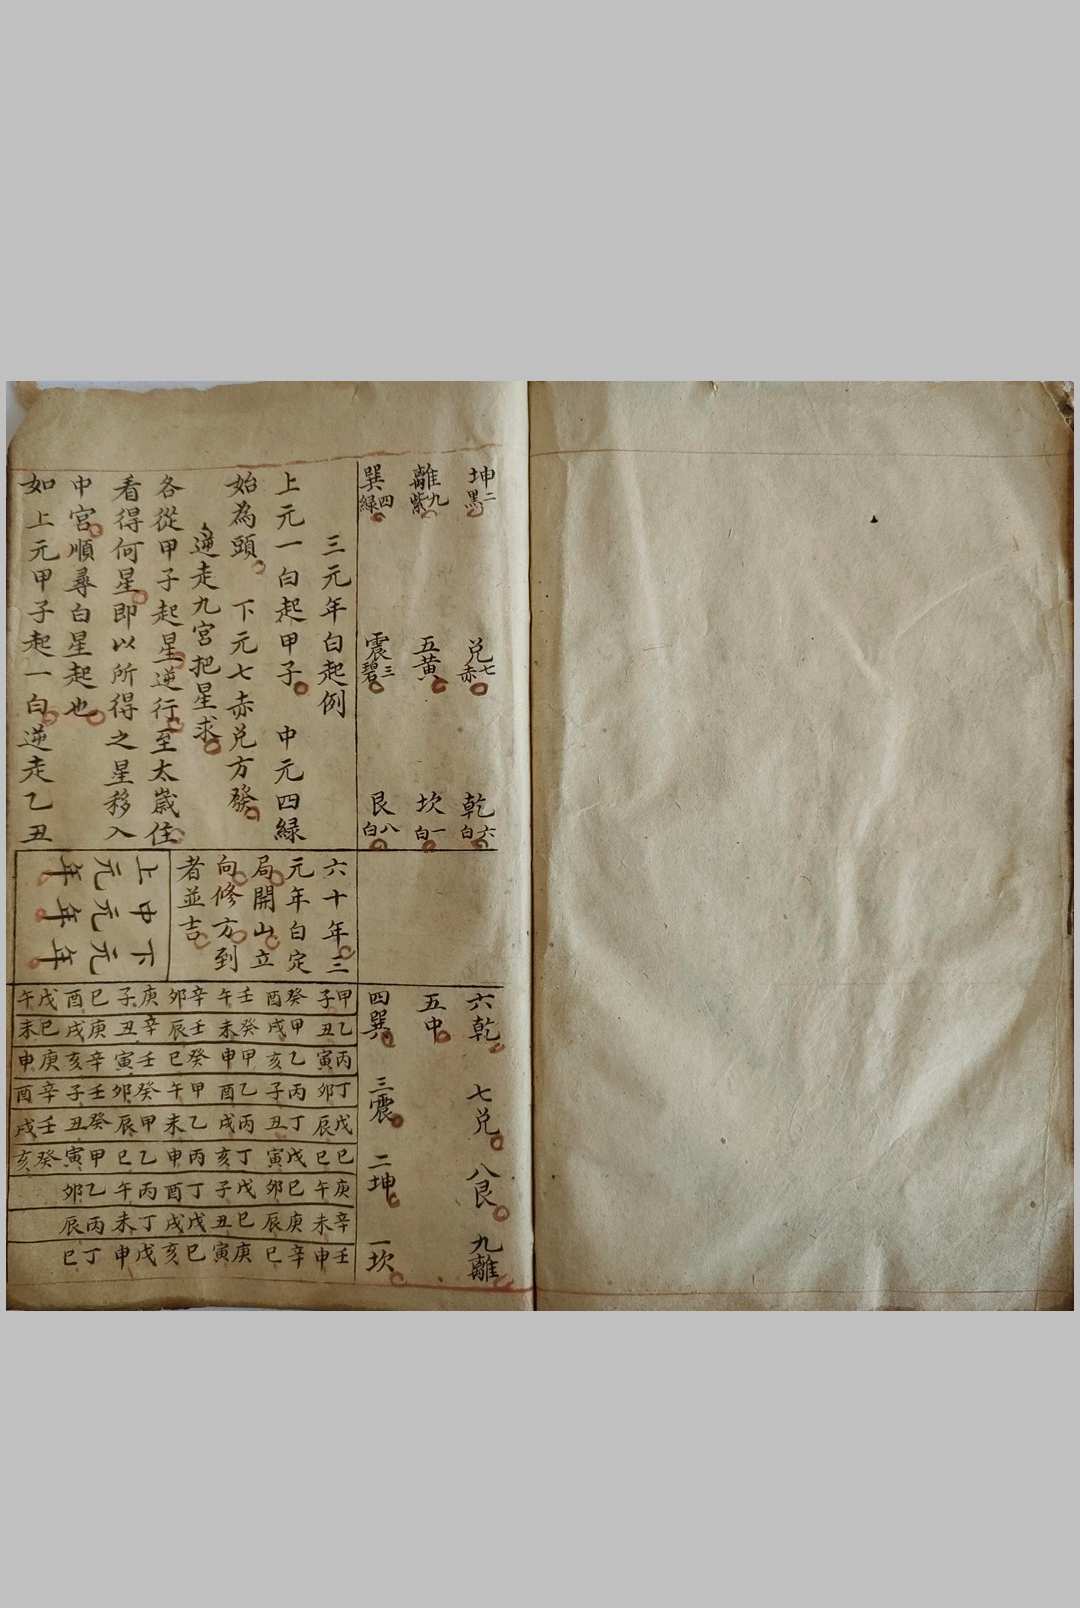 坤二黑 兌七赤 乾六白
離九紫 五黃 坎一白
巽四綠 震三碧 艮八白
三元年白起例
上元一白起甲子 中元四綠
始為頭 下元七赤兌方發
逆走九宮把星求
各從甲子起星逆行至太歲住
看得何星即以所得之星移入
中宮順尋白星起也
如上元甲子起一白逆走乙丑
六十年三
元年白定
局開山立
向修方到
者並吉
上元年
中元年
下元年
六乾 七兌 八艮 九離
五中
四巽 三震 二坤 一坎
甲子 癸酉 壬午 辛卯 庚子 己酉 戊午
乙丑 甲戌 癸未 壬辰 辛丑 庚戌 己未
丙寅 乙亥 甲申 癸巳 壬寅 辛亥 庚申
丁卯 丙子 乙酉 甲午 癸卯 壬子 辛酉
戊辰 丁丑 丙戌 乙未 甲辰 癸丑 壬戌
己巳 戊寅 丁亥 丙申 乙巳 甲寅 癸亥
庚午 己卯 戊子 丁酉 丙午 乙卯
辛未 庚辰 己丑 戊戌 丁未 丙辰
壬申 辛巳 庚寅 己亥 戊申 丁巳